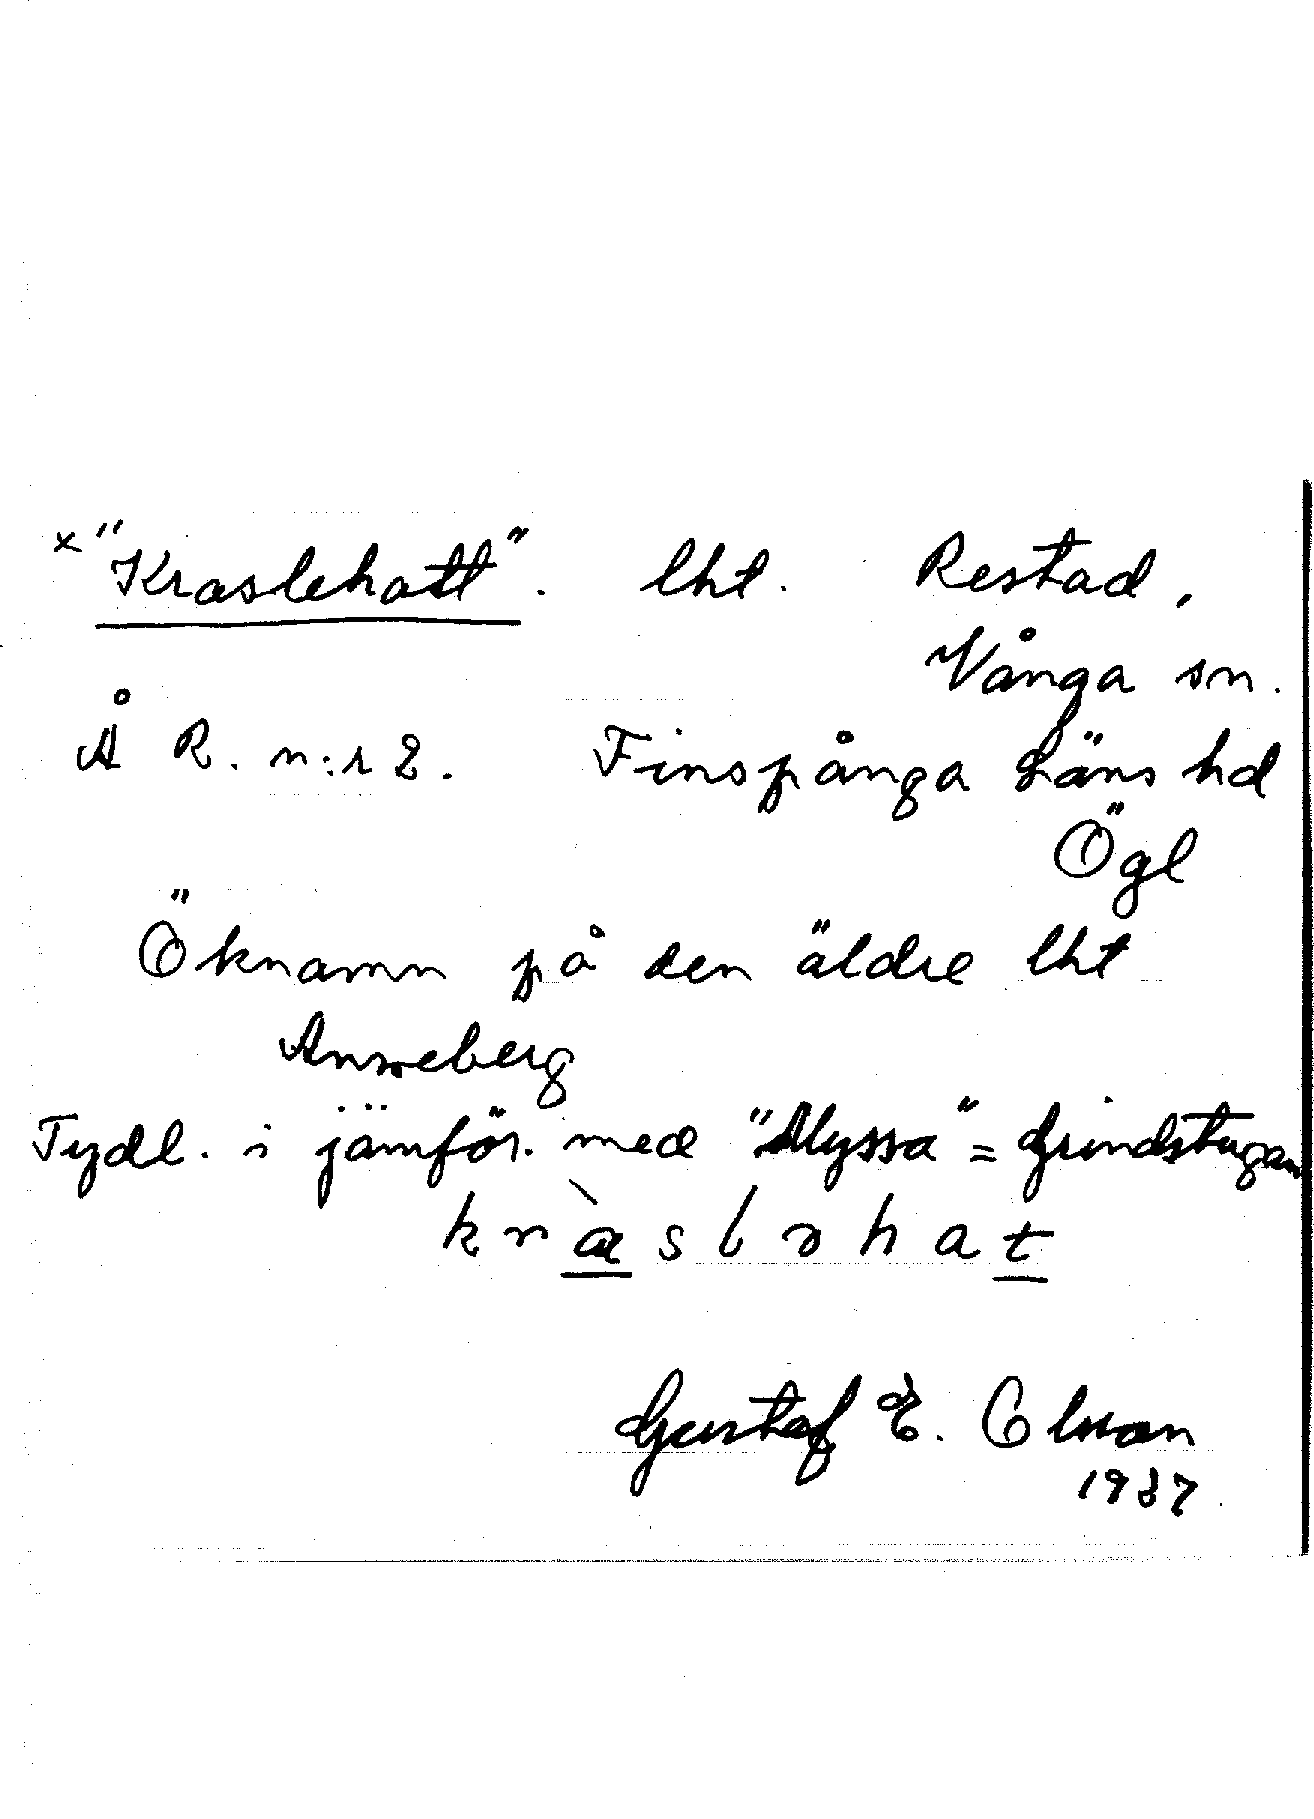 x "Kraslehatt". lht. Restad,
Vånga sn.
Å R. n:r 2. Finspånga Läns hd
Ögl
Öknamn på den äldre lht
Anneberg
Tydl. i jämför. med "Myssa" = Grindstugan
kràsləhat
Gustaf E.
1937